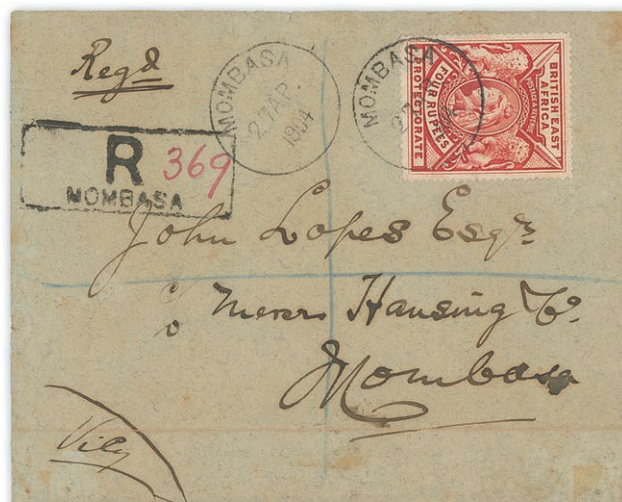 Regd
MOMBASA
27 AP.
1904
MOMBASA
BRITISH EAST
AFRICA
FOUR RUPEES
PROTECTORATE
R 369
MOMBASA
John Lopes Esqre
c/o Messrs Hansing & Co.
Mombasa